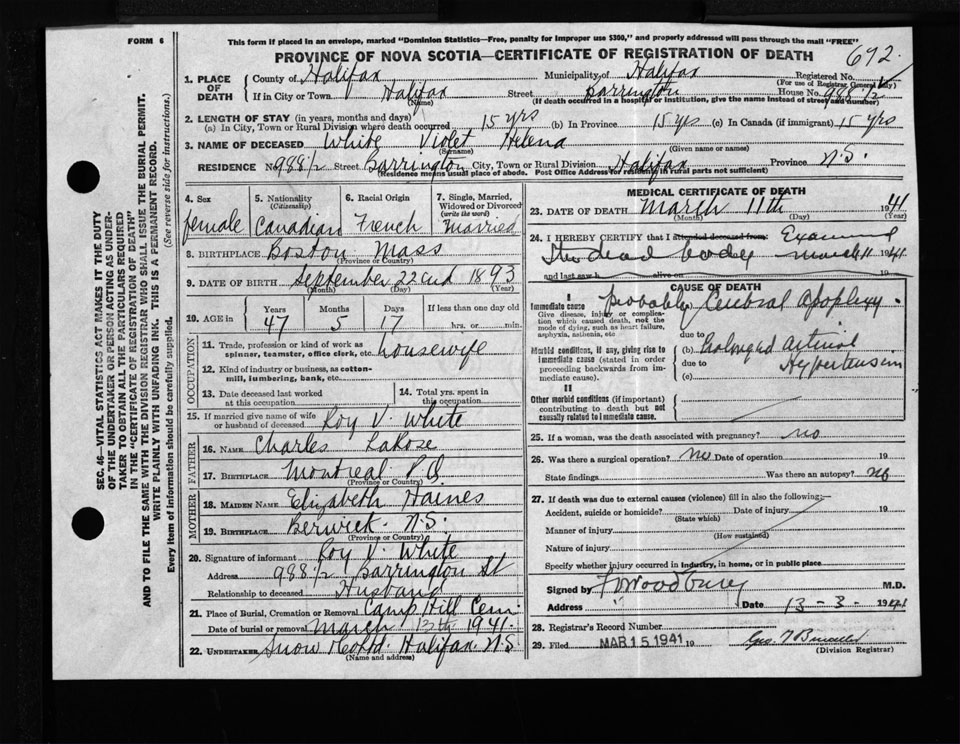 FORM 6
This form if placed in an envelope, marked "Dominion Statistics—Free, penalty for improper use $300," and properly addressed will pass through the mail "FREE"
PROVINCE OF NOVA SCOTIA—CERTIFICATE OF REGISTRATION OF DEATH
672
1. PLACE OF DEATH
County of Halifax Municipality of Halifax Registered No.
(For use of Registrar General only)
If in City or Town Halifax Street Barrington House No. 988 1/2
(Name) (If death occurred in a hospital or institution, give the name instead of street and number)
2. LENGTH OF STAY (in years, months and days)
(a) In City, Town or Rural Division where death occurred 15 yrs (b) In Province 15 yrs (c) In Canada (if immigrant) 15 yrs
3. NAME OF DECEASED White Violet Helena
(Surname) (Given name or names)
RESIDENCE No 988 1/2 Street Barrington City, Town or Rural Division Halifax Province N.S.
(Residence means usual place of abode. Post Office Address for residents in rural parts not sufficient)
4. Sex
female
5. Nationality
(Citizenship)
Canadian
6. Racial Origin
French
7. Single, Married, Widowed or Divorced
(write the word)
Married
8. BIRTHPLACE Boston Mass
(Province or Country)
9. DATE OF BIRTH September 22nd 1893
(Month) (Day) (Year)
10. AGE in
Years Months Days If less than one day old
47 5 17 hrs. or min.
OCCUPATION
11. Trade, profession or kind of work as spinner, teamster, office clerk, etc. housewife
12. Kind of industry or business, as cotton-mill, lumbering, bank, etc.
13. Date deceased last worked at this occupation
14. Total yrs. spent in this occupation
15. If married give name of wife or husband of deceased Roy V. White
FATHER
16. NAME Charles LaRose
17. BIRTHPLACE Montreal P.Q.
(Province or Country)
MOTHER
18. MAIDEN NAME Elizabeth Haines
19. BIRTHPLACE Berwick N.S.
(Province or Country)
20. Signature of informant Roy V. White
Address 988 1/2 Barrington St
Relationship to deceased Husband
21. Place of Burial, Cremation or Removal Camp Hill Cem.
Date of burial or removal March 13th 1941.
22. UNDERTAKER Snow Halifax N.S
(Name and address)
MEDICAL CERTIFICATE OF DEATH
23. DATE OF DEATH March 11th 1941
(Month) (Day) (Year)
24. I HEREBY CERTIFY that I attended deceased from: Examined
the dead body March 11 1941
and last saw h alive on 19
CAUSE OF DEATH
I
Immediate cause Probably Cerebral Apoplexy.
Give disease, injury or complication which caused death, not the mode of dying, such as heart failure, asphyxia, asthenia, etc
due to
Morbid conditions, if any, giving rise to immediate cause (stated in order proceeding backwards from immediate cause).
(b) Prolonged Arterial
due to Hypertension
(c)
II
Other morbid conditions (if important) contributing to death but not causally related to immediate cause.
25. If a woman, was the death associated with pregnancy? no
26. Was there a surgical operation? no Date of operation 19
State findings Was there an autopsy? no
27. If death was due to external causes (violence) fill in also the following:—
Accident, suicide or homicide? Date of injury 19
(State which)
Manner of injury
(How sustained)
Nature of injury
Specify whether injury occurred in industry, in home, or in public place
Signed by Woodbury M.D.
Address Date 13-3- 1941
28. Registrar's Record Number
29. Filed MAR 15 1941 19
(Division Registrar)
SEC. 46—VITAL STATISTICS ACT MAKES IT THE DUTY OF THE UNDERTAKER OR PERSON ACTING AS UNDERTAKER TO OBTAIN ALL THE PARTICULARS REQUIRED IN THE "CERTIFICATE OF REGISTRATION OF DEATH" AND TO FILE THE SAME WITH THE DIVISION REGISTRAR WHO SHALL ISSUE THE BURIAL PERMIT.
WRITE PLAINLY WITH UNFADING INK. THIS IS A PERMANENT RECORD.
Every item of information should be carefully supplied. (See reverse side for instructions.)